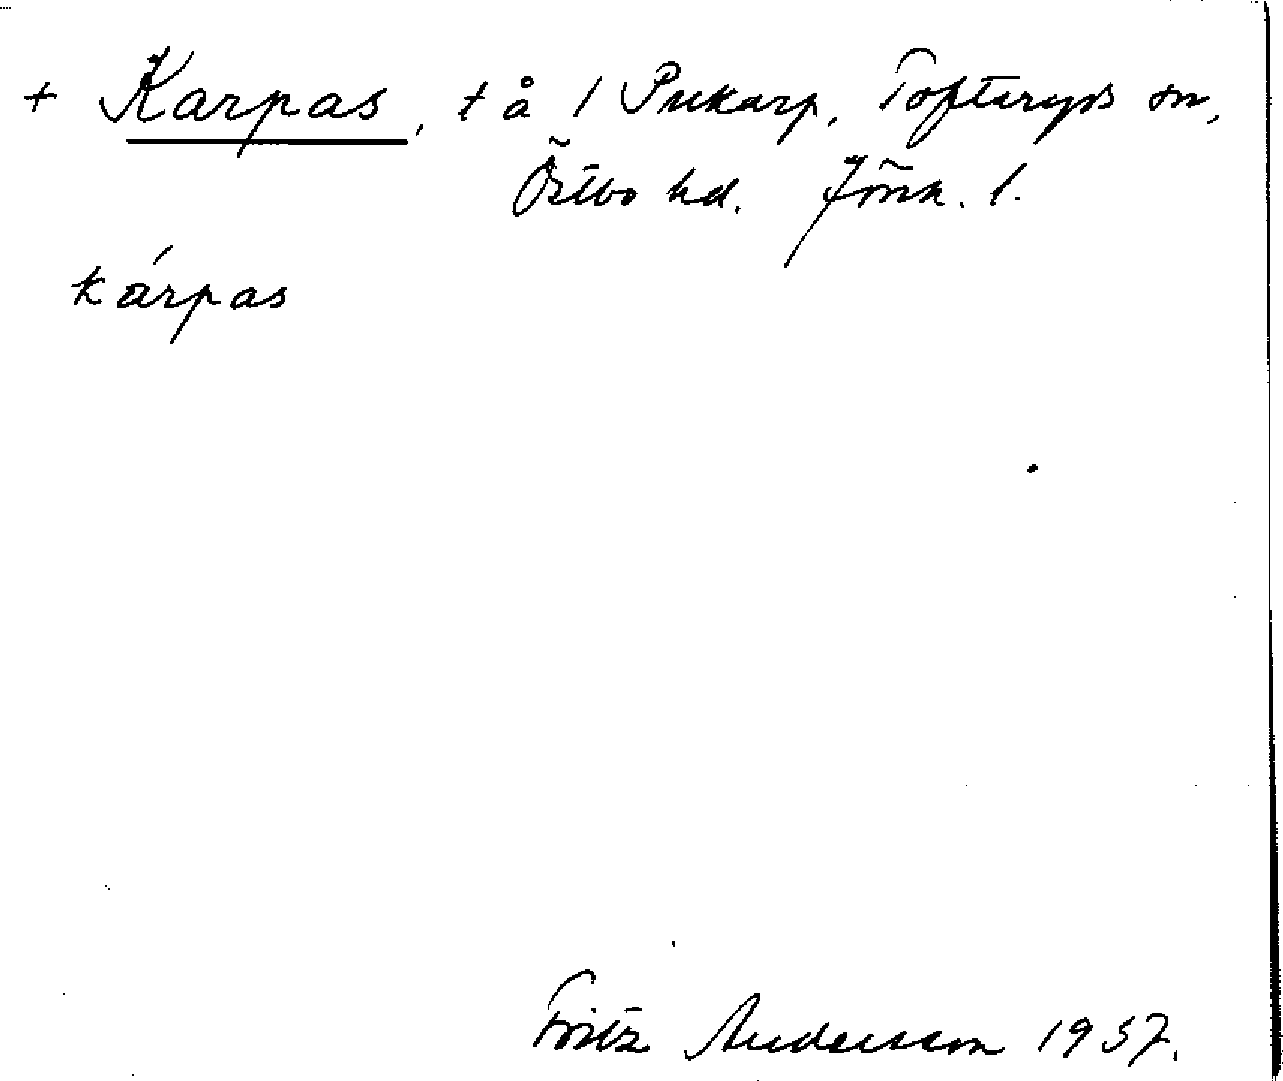 + Karpas, t å / Pukarp, Tofteryds sn,
Östbo hd. Jönk. l.
kárpas
Fritz Andersson 1937.